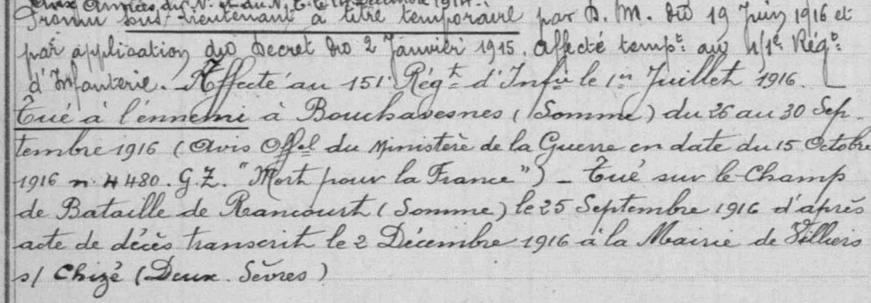 aux Armées du N. et du N. E. le
Promu sous-lieutenant à titre temporaire par D. M. du 19 Juin 1916 et
par application du Décret du 2 Janvier 1915. Affecté tempt au Régt
d'Infanterie. Affecté au 151e Régt d'Infie le 1er Juillet 1916.
Tué à l'ennemi à Bouchavesnes (Somme) du 26 au 30 Sep-
tembre 1916 (Avis Offel du Ministère de la Guerre en date du 15 Octobre
1916 n. 4480. G.Z. "Mort pour la France") - Tué sur le Champ
de Bataille de Rancourt (Somme) le 25 Septembre 1916 d'après
acte de décès transcrit le 2 Décembre 1916 à la Mairie de Villiers
s/ Chizé (Deux. Sèvres)